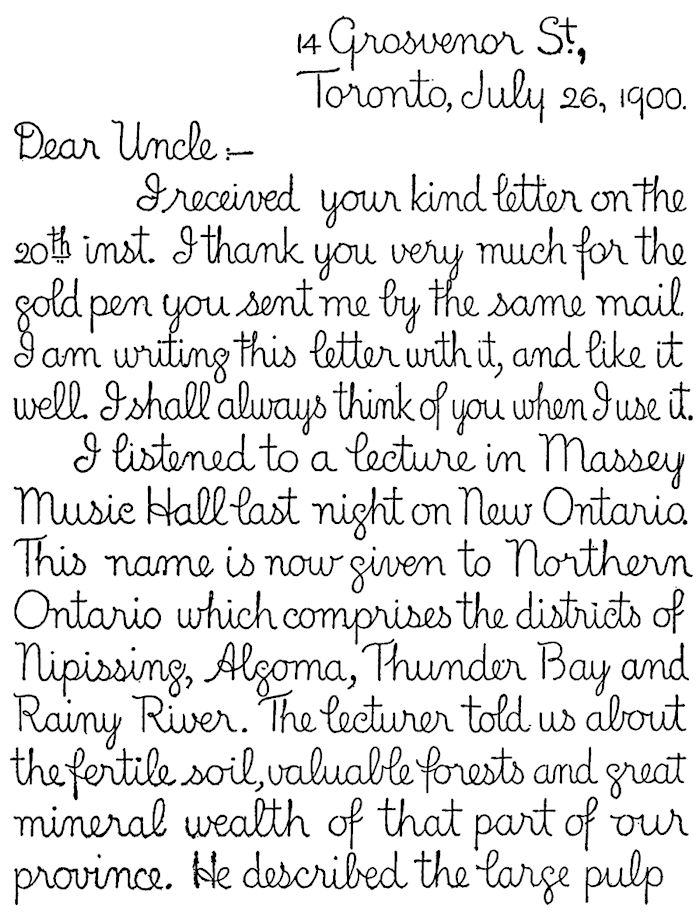 14 Grosvenor St.,
Toronto, July 26, 1900.
Dear Uncle:—
I received your kind letter on the
20th inst. I thank you very much for the
gold pen you sent me by the same mail.
I am writing this letter with it, and like it
well. I shall always think of you when I use it.
I listened to a lecture in Massey
Music Hall last night on New Ontario.
This name is now given to Northern
Ontario which comprises the districts of
Nipissing, Algoma, Thunder Bay and
Rainy River. The lecturer told us about
the fertile soil, valuable forests and great
mineral wealth of that part of our
province. He described the large pulp